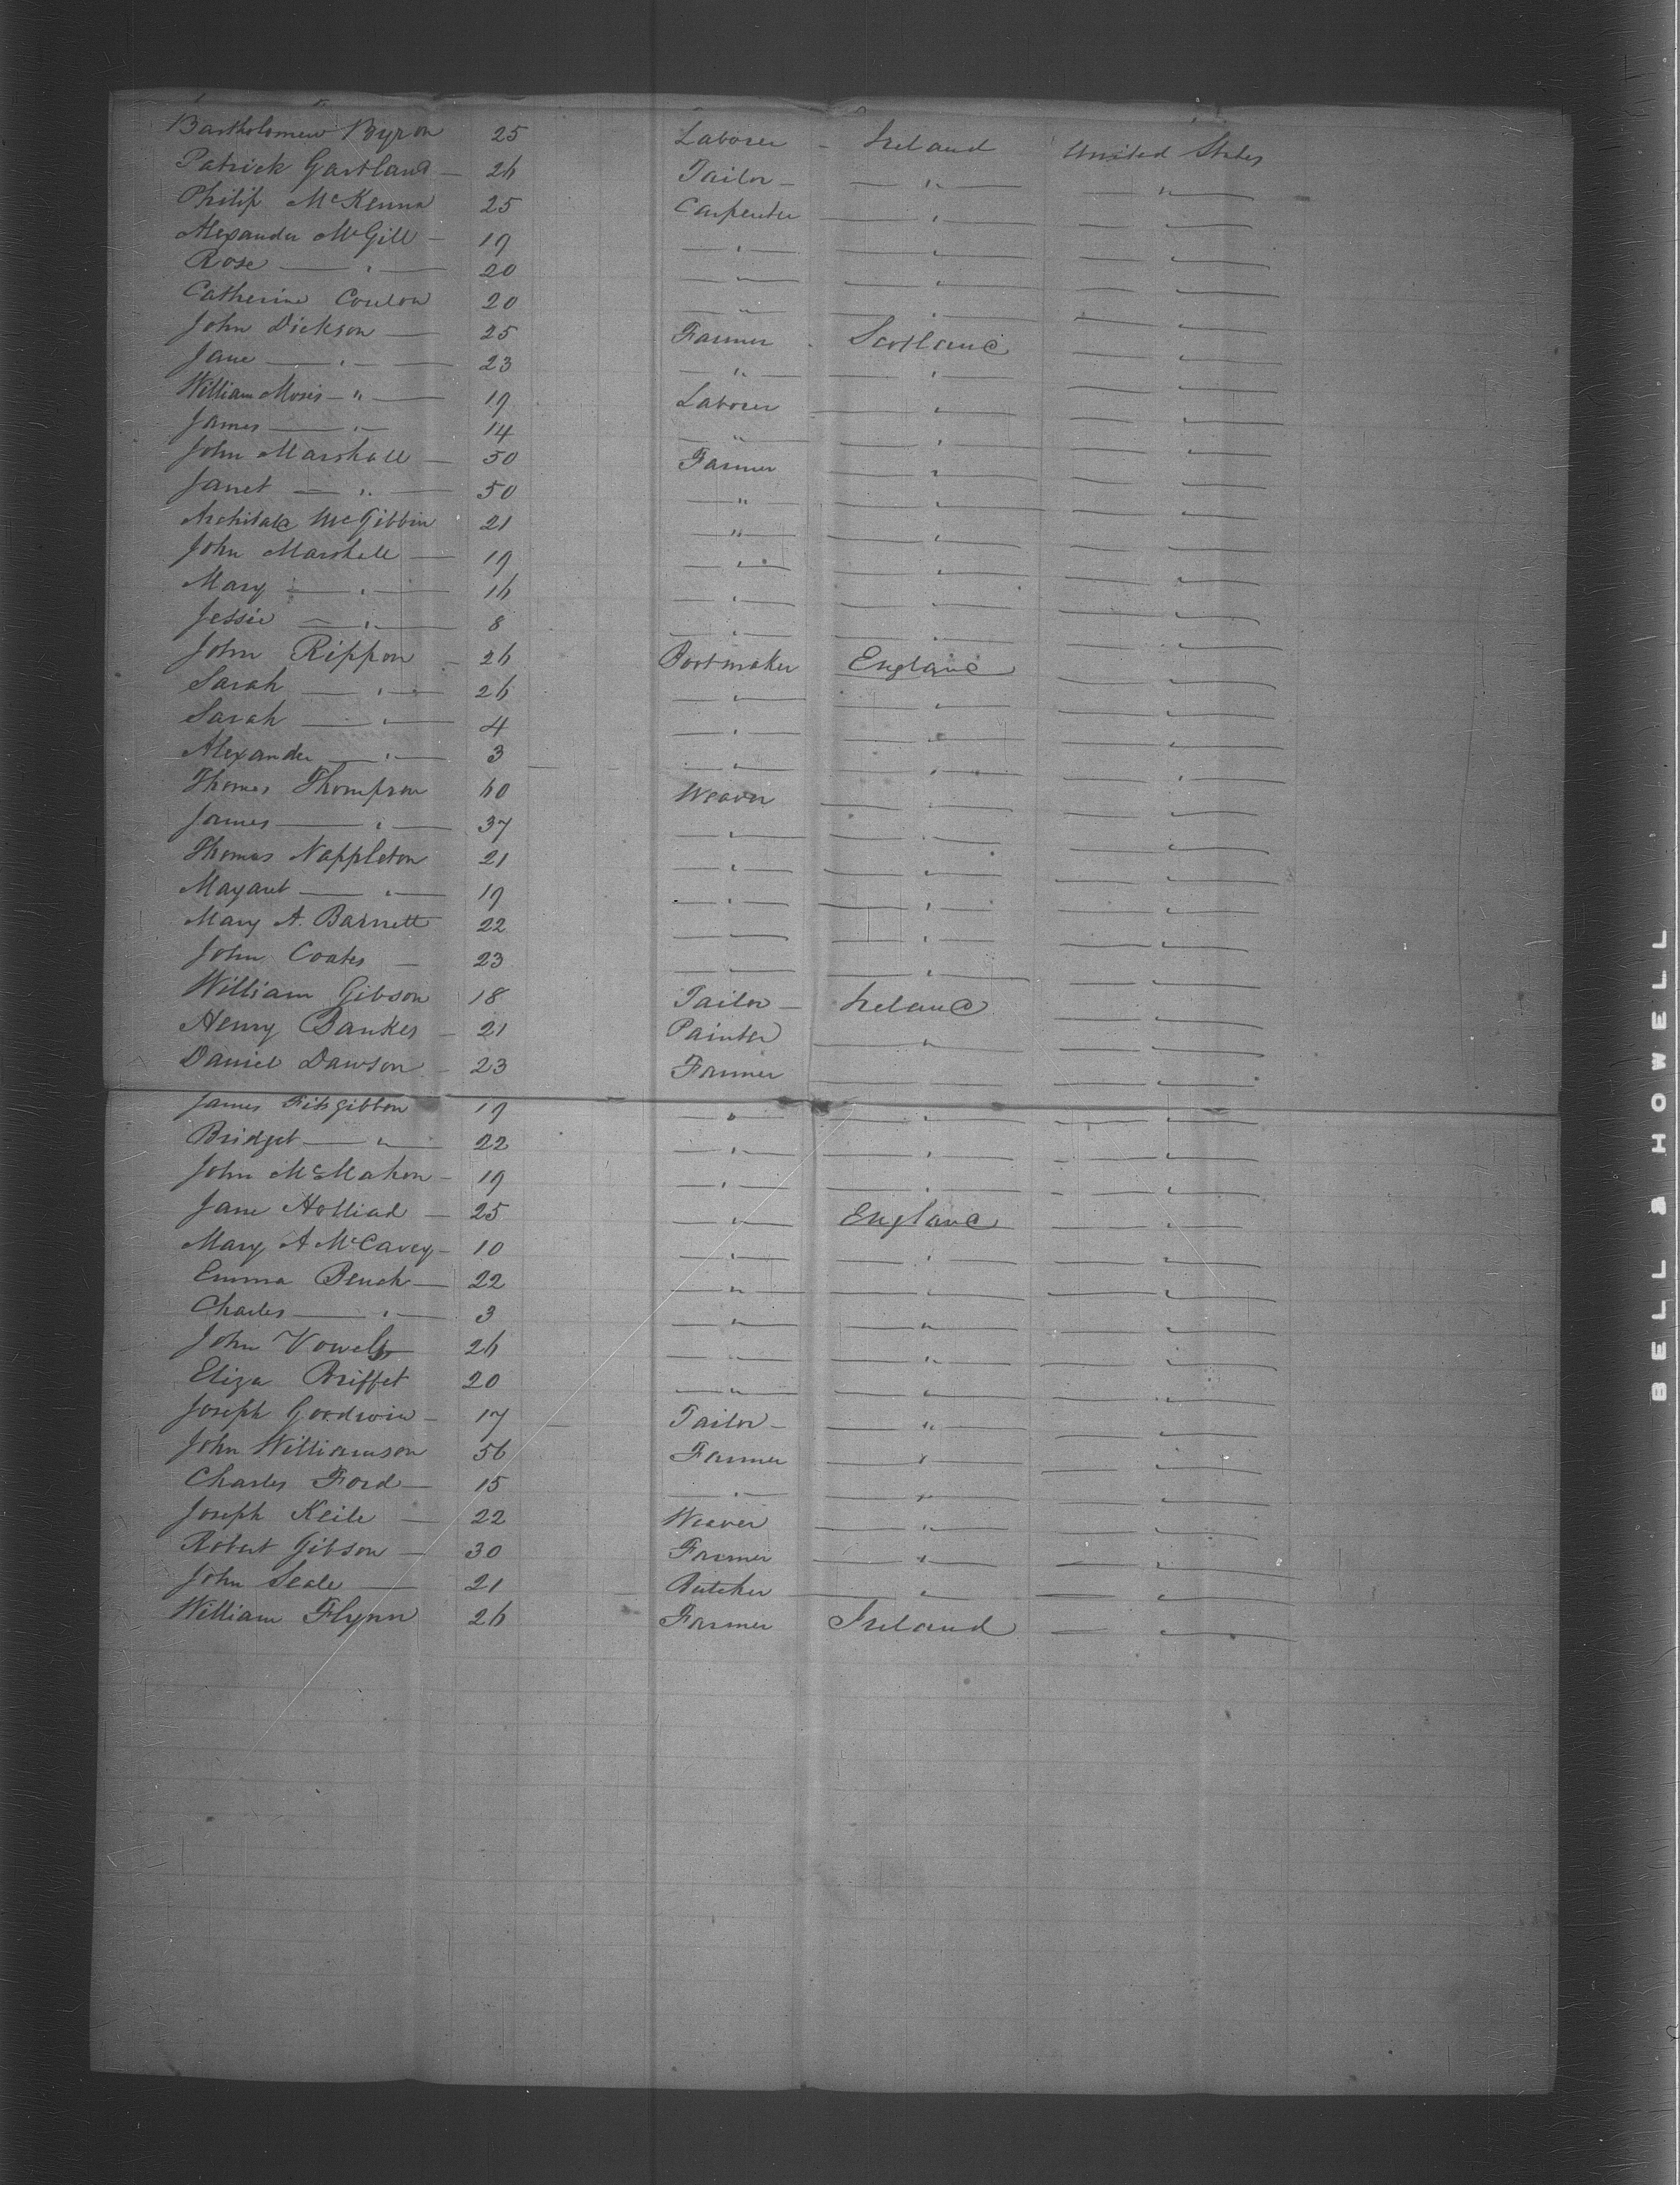 Bartholomew Byron 25 Laborer - Ireland United States
Patrick Gartland - 26 Tailor - — " — — " —
Philip McKenna 25 Carpenter — " — — " —
Alexander McGill - 19 — " — — " — — " —
Rose — " — 20 — " — — " — — " —
Catherine Conlon 20 — " — — " — — " —
John Dickson — 25 Farmer - Scotland — " —
Jane — " — 23 — " — — " — — " —
William Moris — " — 19 Laborer — " — — " —
James — " — 14 — " — — " — — " —
John Marshall — 50 Farmer — " — — " —
Janet — " — 50 — " — — " — — " —
Archibald McGibbin 21 — " — — " — — " —
John Marshall — 19 — " — — " — — " —
Mary — " — 16 — " — — " — — " —
Jessie — " — 8 — " — — " — — " —
John Rippon - 26 Bootmaker England — " —
Sarah — " — 26 — " — — " — — " —
Sarah — " — 4 — " — — " — — " —
Alexander — " — 3 — " — — " — — " —
Thomas Thompson 60 Weaver — " — — " —
James — " — 37 — " — — " — — " —
Thomas Nappleton 21 — " — — " — — " —
Magaret — " — 19 — " — — " — — " —
Mary A. Barnett 22 — " — — " — — " —
John Coates — 23 — " — — " — — " —
William Gibson 18 Tailor — Ireland — " —
Henry Bankes - 21 Painter — " — — " —
Daniel Dawson - 23 Farmer — " — — " —
James Fitzgibbon 19 — " — — " — — " —
Bridget — " — 22 — " — — " — — " —
John McMahon - 19 — " — — " — — " —
Jane Holliad — 25 — " — England — " —
Mary A McCavey - 10 — " — — " — — " —
Emma Bench — 22 — " — — " — — " —
Charles — " — 3 — " — — " — — " —
John Vowels 26 — " — — " — — " —
Eliza Briffet 20 — " — — " — — " —
Joseph Goodwin - 17 Tailor — — " — — " —
John Williamson 56 Farmer — " — — " —
Charles Ford — 15 — " — — " — — " —
Joseph Keile — 22 Weaver — " — — " —
Robert Gibson — 30 Farmer — " — — " —
John Seale — 21 Butcher — " — — " —
William Flynn 26 Farmer Ireland — " —
BELL & HOWELL